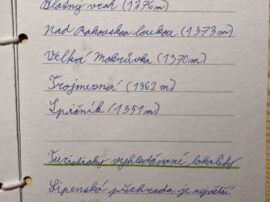 Blatný vrch (1376 m)
Nad Rakouskou loukou (1373 m)
Velká Mokrůvka (1370 m)
Trojmezná (1362 m)
Špičník (1351 m)
Turisticky vyhledávané lokality
Lipenská přehrada je největší